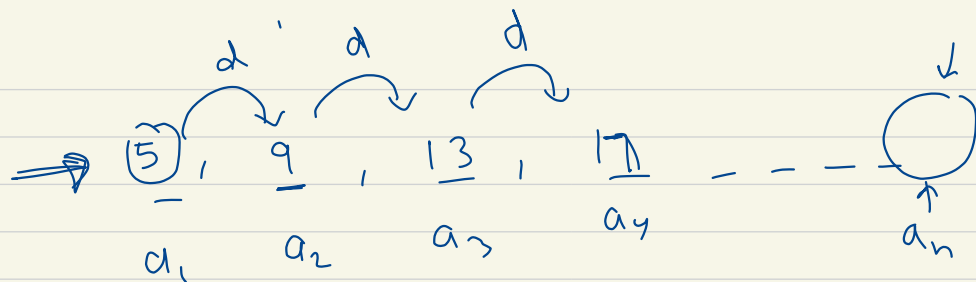 d d d
5, 9, 13, 17 - - - -
a₁ a₂ a₃ a₄ aₙ